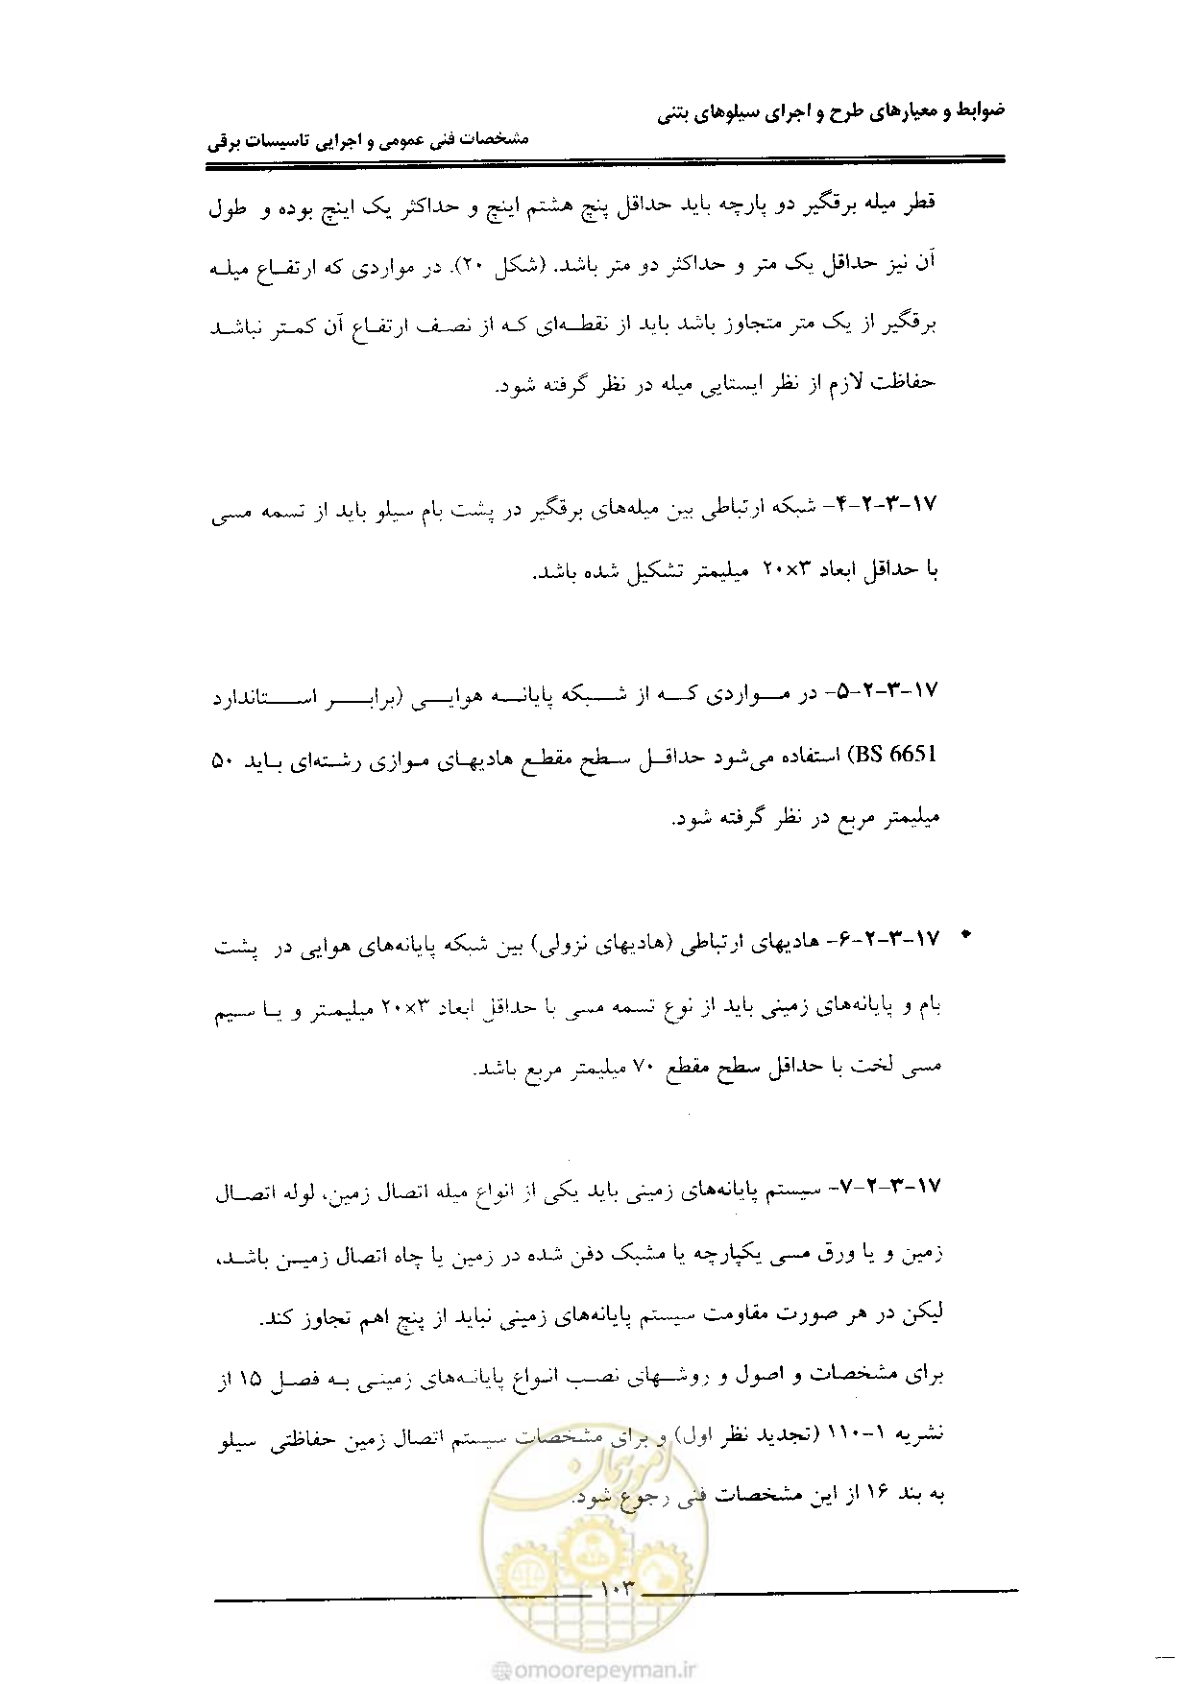 ضوابط و معیارهای طرح و اجرای سیلوهای بتنی
مشخصات فنی عمومی و اجرایی تاسیسات برقی
قطر میله برقگیر دو پارچه باید حداقل پنج هشتم اینچ و حداکثر یک اینچ بوده و طول
آن نیز حداقل یک متر و حداکثر دو متر باشد. (شکل ۲۰). در مواردی که ارتفاع میله
برقگیر از یک متر متجاوز باشد باید از نقطه‌ای که از نصف ارتفاع آن کمتر نباشد
حفاظت لازم از نظر ایستایی میله در نظر گرفته شود.
۱۷-۳-۲-۴- شبکه ارتباطی بین میله‌های برقگیر در پشت بام سیلو باید از تسمه مسی
با حداقل ابعاد ۳×۲۰ میلیمتر تشکیل شده باشد.
۱۷-۳-۲-۵- در مواردی که از شبکه پایانه هوایی (برابر استاندارد
BS 6651) استفاده می‌شود حداقل سطح مقطع هادیهای موازی رشته‌ای باید ۵۰
میلیمتر مربع در نظر گرفته شود.
* ۱۷-۳-۲-۶- هادیهای ارتباطی (هادیهای نزولی) بین شبکه پایانه‌های هوایی در پشت
بام و پایانه‌های زمینی باید از نوع تسمه مسی با حداقل ابعاد ۳×۲۰ میلیمتر و یا سیم
مسی لخت با حداقل سطح مقطع ۷۰ میلیمتر مربع باشد.
۱۷-۳-۲-۷- سیستم پایانه‌های زمینی باید یکی از انواع میله اتصال زمین، لوله اتصال
زمین و یا ورق مسی یکپارچه یا مشبک دفن شده در زمین یا چاه اتصال زمین باشد،
لیکن در هر صورت مقاومت سیستم پایانه‌های زمینی نباید از پنج اهم تجاوز کند.
برای مشخصات و اصول و روشهای نصب انواع پایانه‌های زمینی به فصل ۱۵ از
نشریه ۱-۱۱۰ (تجدید نظر اول) و برای مشخصات سیستم اتصال زمین حفاظتی سیلو
به بند ۱۶ از این مشخصات فنی رجوع شود.
امور پیمان
۱۰۳
@omoorepeyman.ir